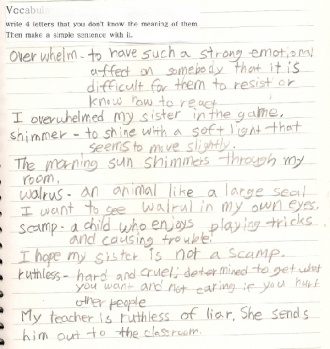 Vocabul
Write 4 letters that you don't know the meaning of them
Then make a simple sentence with it.
Overwhelm - to have such a strong emotional
affect on somebody that it is
difficult for them to resist or
know how to react
I overwhelmed my sister in the game.
shimmer - to shine with a soft light that
seems to move slightly.
The morning sun shimmers through my
room.
walrus - an animal like a large seal
I want to see walrus in my own eyes.
scamp - a child who enjoys playing tricks
and causing trouble!
I hope my sister is not a scamp.
ruthless - hard and cruel, determined to get what
you want and not caring if you hurt
other people
My teacher is ruthless of liar, She sends
him out to the classroom.